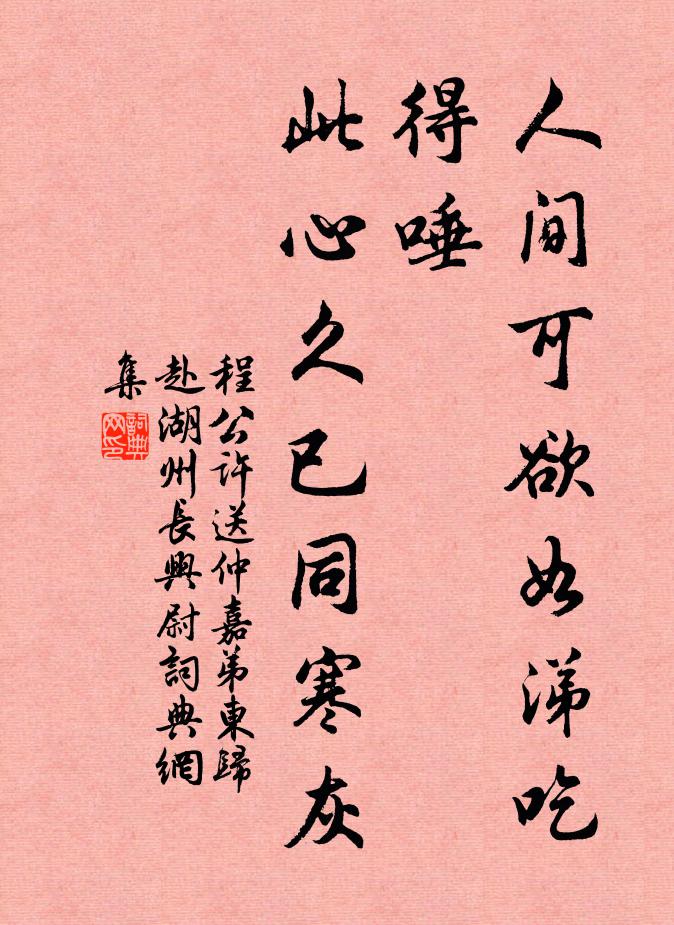 人间可欲如涕吃
得唾
此心久已同寒灰
程公许送仲嘉弟東歸
赴湖州長興尉詞典網
集
詞典
网印